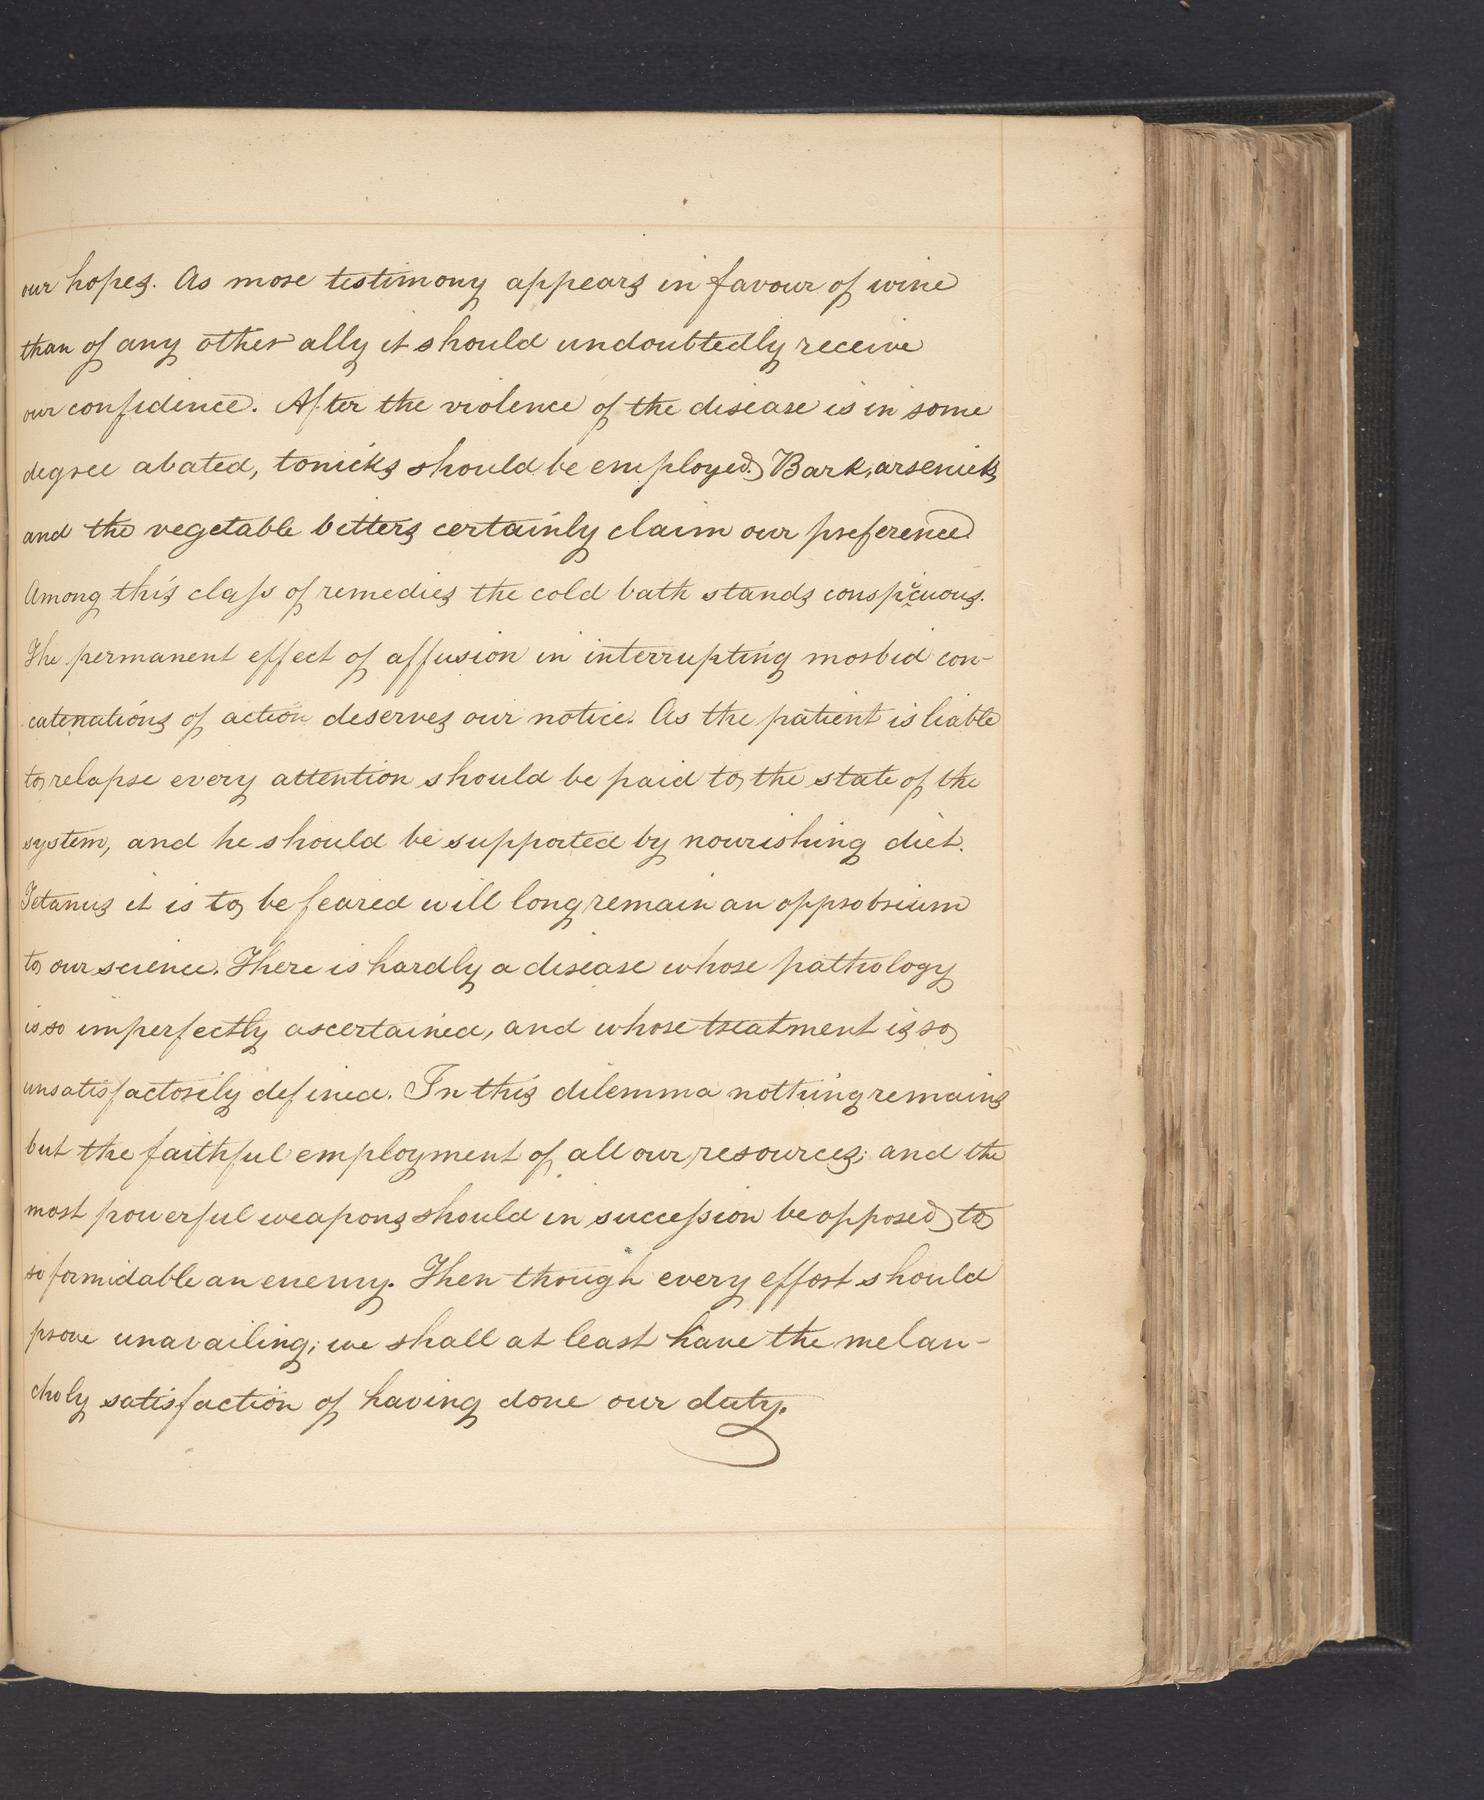 our hopes. As more testimony appears in favour of wine
than of any other ally it should undoubtedly receive
our confidence. After the violence of the disease is in some
degree abated, tonicks should be employed. Bark, arsenick
and the vegetable bitters certainly claim our preference
Among this claſs of remedies the cold bath stands conspicuous.
The permanent effect of affusion in interrupting morbid con-
catenations of action deserves our notice. As the patient is liable
to relapse every attention should be paid to the state of the
system, and he should be supported by nourishing diet.
Tetanus it is to be feared will long remain an opprobrium
to our science. There is hardly a disease whose pathology
is so imperfectly ascertained, and whose treatment is so
unsatisfactorily defined. In this dilemma nothing remains
but the faithful employment of all our resources; and the
most powerful weapons should in succeſsion be opposed to
so formidable an enemy. Then though every effort should
prove unavailing; we shall at least have the melan-
choly satisfaction of having done our duty.